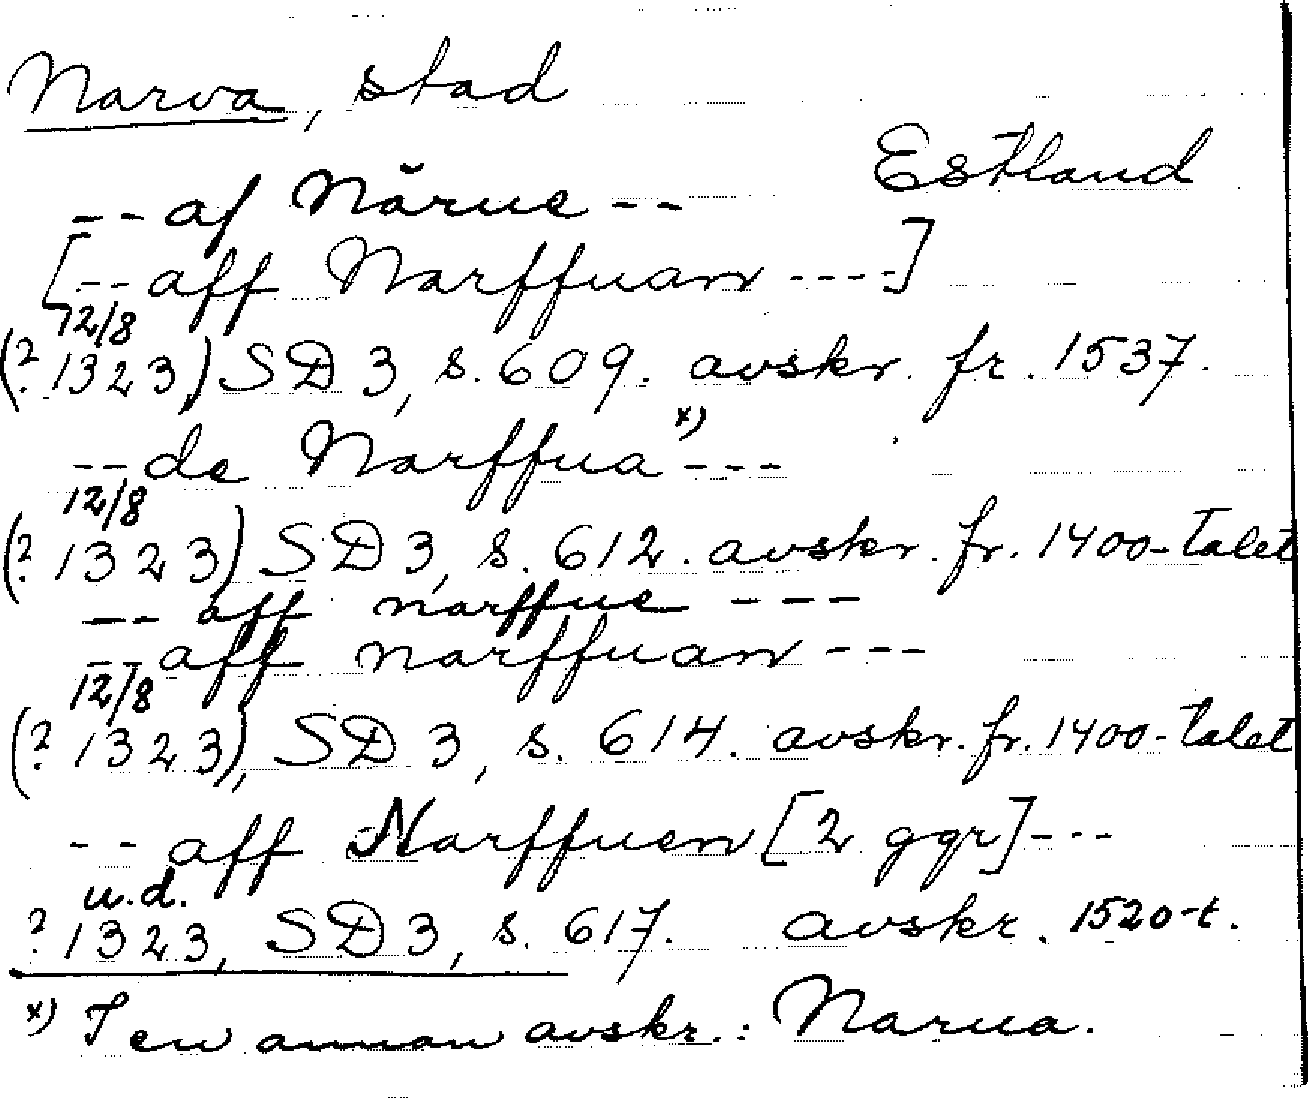 Narva, stad
Estland
-- af Nărue --
[-- aff Narffuan ----]
12/8
(? 1323) SD 3, s. 609. avskr. fr. 1537.
-- de Narffua x) ---
12/8
(? 1323) SD 3, s. 612. avskr. fr. 1400-talet
-- aff narffue ---
-- aff narffuan ---
12/8
(? 1323), SD 3, s. 614. avskr. fr. 1400-talet
-- aff Narffuen [2 ggr] ---
u.d.
? 1323, SD 3, s. 617. avskr. 1520-t.
x) I en annan avskr.: Narua.